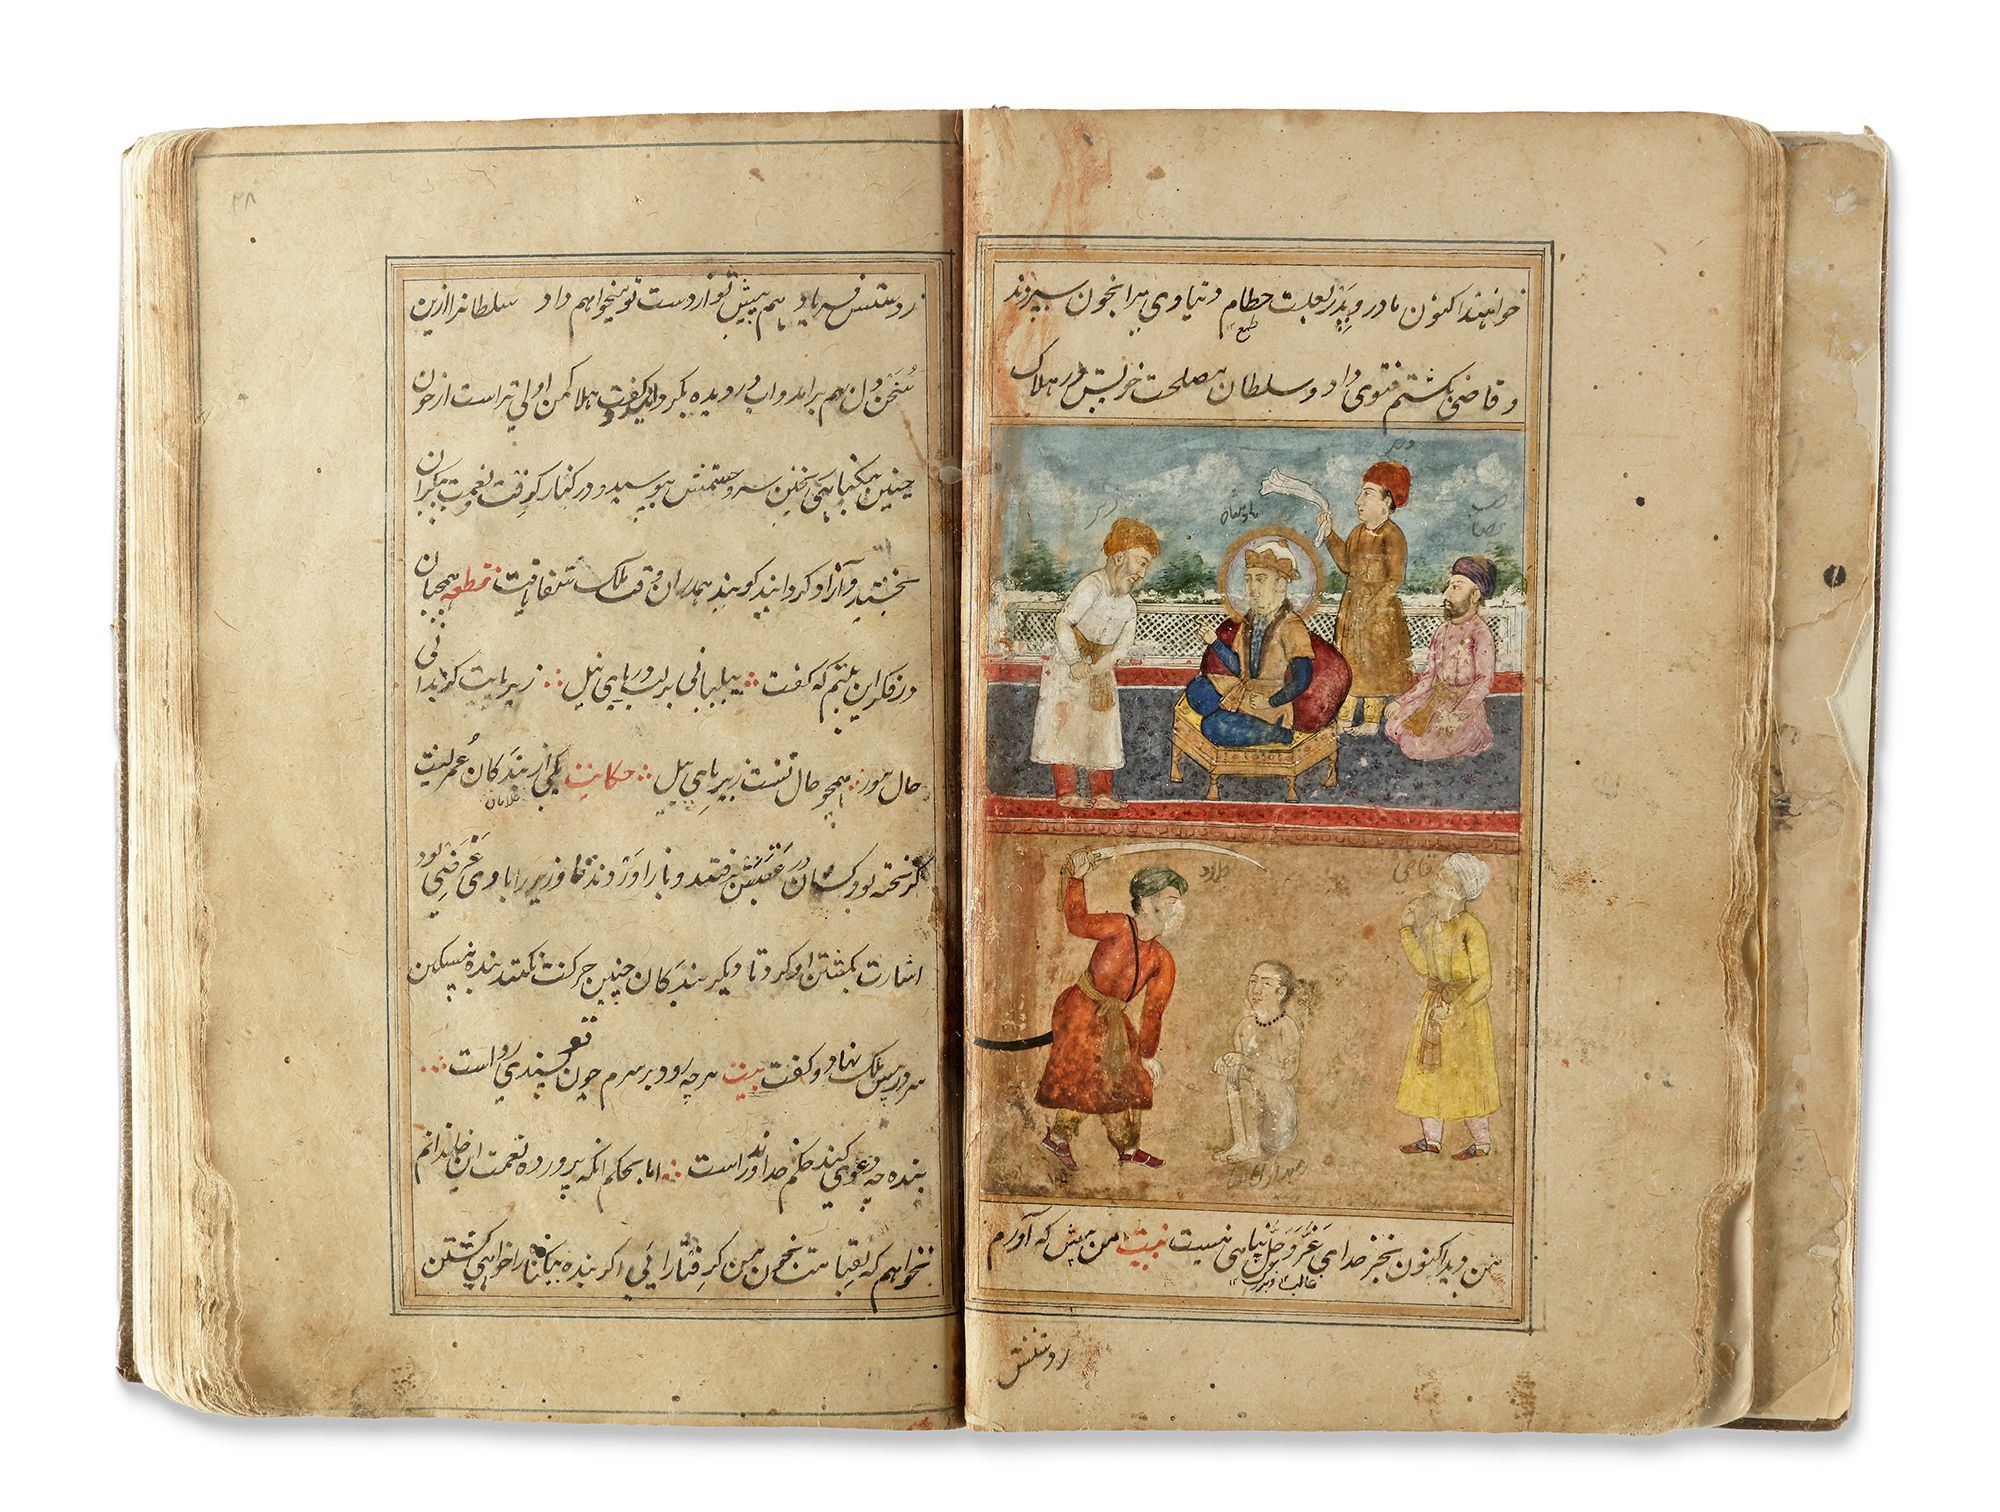 خواهند اکنون مادر و پدر بعلت حطام دنیاوی مرا بخون سپردند
طمع
و قاضی بکشتنم فتوی داد و سلطان مصلحت خویش در هلاک
وزیر
پادشاه
وزیر
جلاد
قاضی
من دید اکنون بجز خدای عز و جل پناهی نیست بیت من پیش که آورم
غالب
ز دستت فریاد هم پیش تو از دست تو میخواهم داد سلطانرا ازین
سخن دل بهم برآمد و آب در دیده بگردانید و گفت هلاک من اولی تر است از خون
چنین بیگناهی ریختن سر و چشمش ببوسید و در کنار گرفت و نعمت بیکران
بخشید و آزاد کردانید گویند همدران وقت ملک شفا یافت قطعه همچنان
در فکر این بیتم که گفت پیلبانی بر لب دریای نیل زیر پایت گر بدانی
حال مور همچو حال تست زیر پای پیل حکایت یکی از بندگان عمر لیث
غلامان
گریخته بود کسان در عقبش برفتند و باز آوردند و وزیر را با وی غرضی بود
اشارت بکشتن او کرد تا دیگر بندگان چنین حرکت نکنند بنده مسکین
سر در پیش ملک نهاد و گفت بیت هرچه رود بر سرم چون تو پسندی رواست
بنده چه دعوی کند حکم خداوند راست اما بحکم آنکه پرورده نعمت این خاندانم
نخواهم که بقیامت بخون من گرفتار آئی اگر بنده بیگناه را خواهی کشتن
۲۸